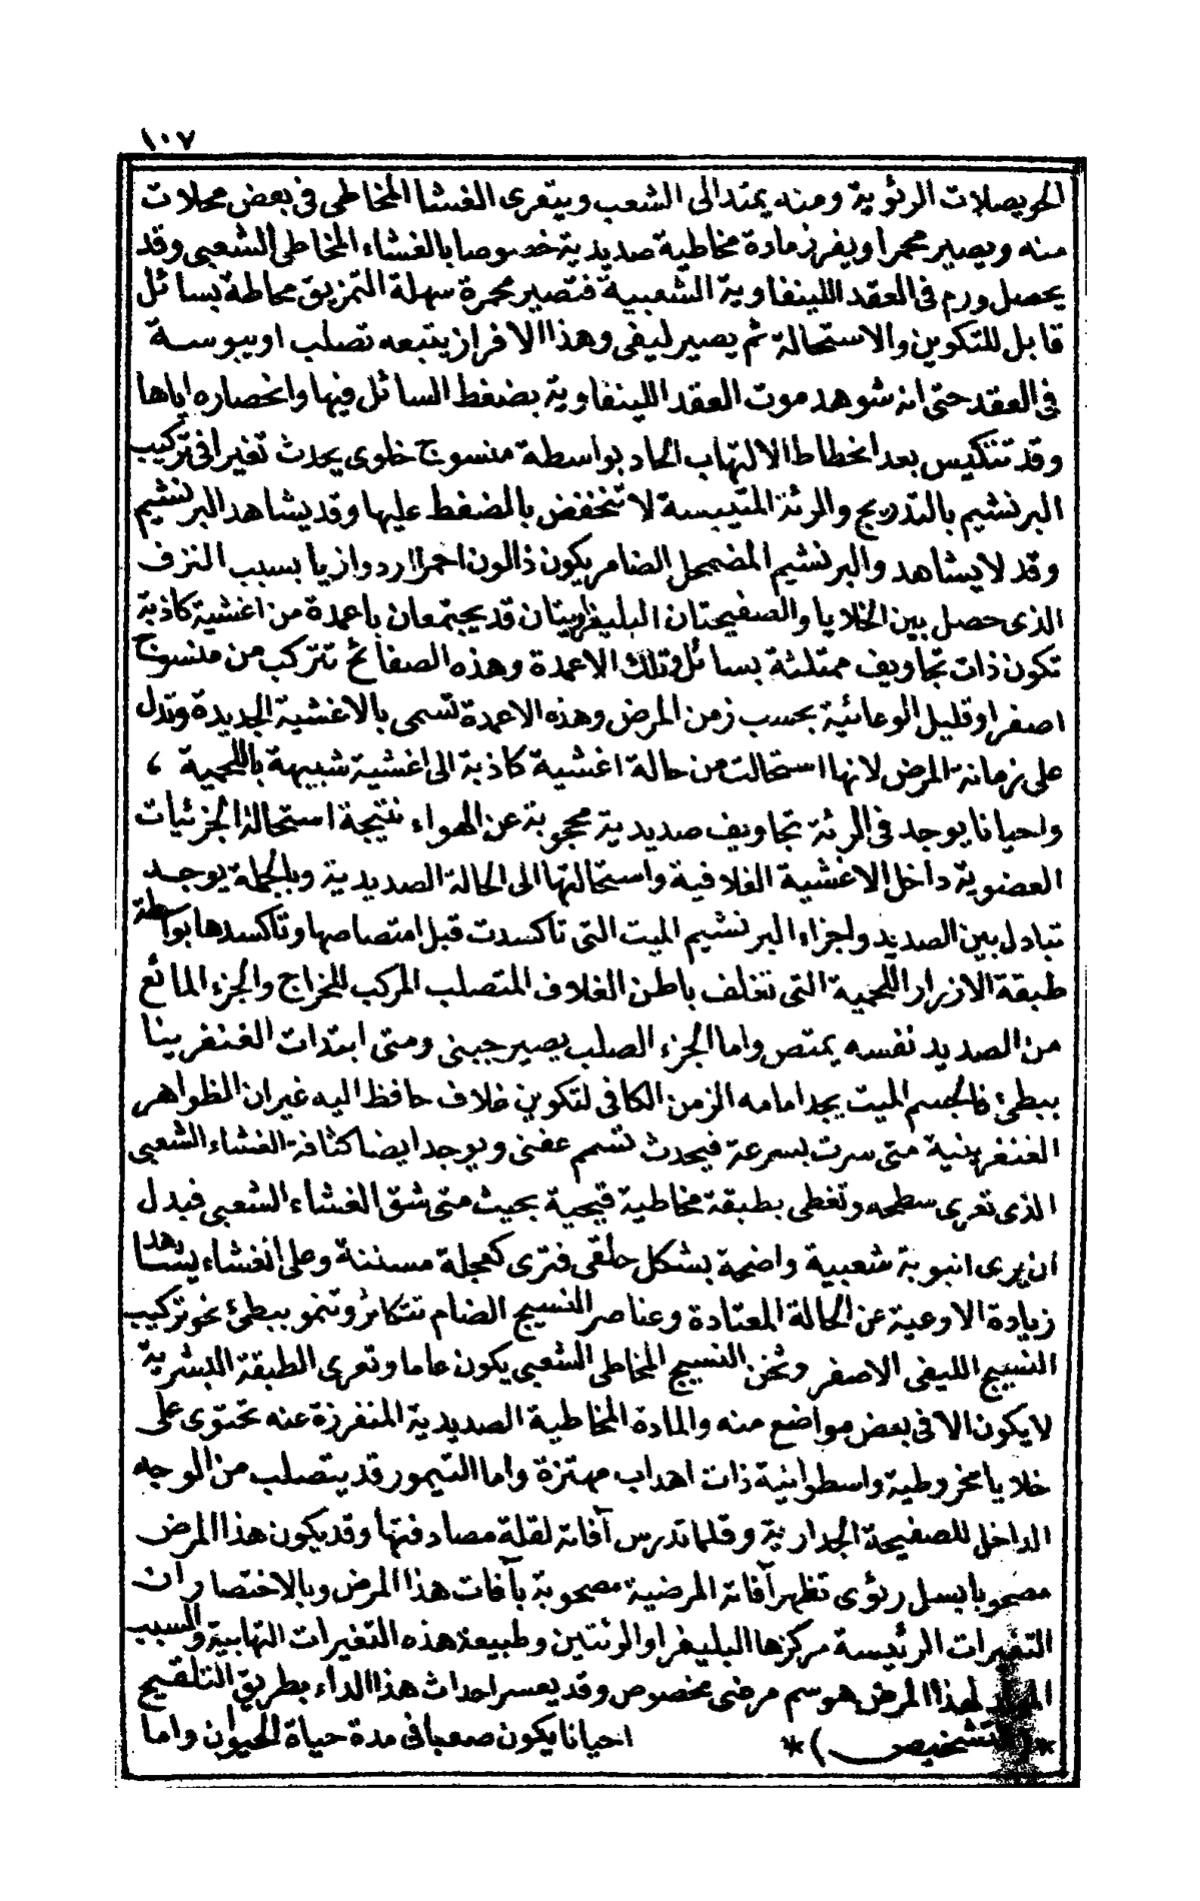 ١٠٧
الحويصلات الرئوية ومنه يمتد الى الشعب ويتعرى الغشا المخاطى فى بعض محلات
منه ويصير محمرا ويفرز مادة مخاطية صديدية خصوصا بالغشاء المخاطى الشعبى وقد
يحصل ورم فى العقد اللينفاوية الشعبية فتصير محمرة سهلة التمزيق محاطة بسائل
قابل للتكوين والاستحالة ثم يصير ليفى وهذا الافراز يتبعه تصلب او يبوسة
فى العقد حتى انه شوهد موت العقد اللينفاوية بضغط السائل فيها وانحصاره اياها
وقد تنكيس بعد انحطاط الالتهاب الحاد بواسطة منسوج خلوى يحدث تغيرا فى تركيب
البرنشيم بالتدريج والرئة المتيبسة لا تنخفض بالضغط عليها وقد يشاهد البرنشيم
وقد لا يشاهد والبرنشيم المضمحل الضامر يكون ذا لون احمر اردوازيا بسبب النزف
الذى حصل بين الخلايا والصفيحتان البليفراويتان قد يجتمعان باعمدة من اغشية كاذبة
تكون ذات تجاويف ممتلئة بسائل وتلك الاعمدة وهذه الصفائح تتركب من منسوج
اصفر او قليل الوعائية بحسب زمن المرض وهذه الاعمدة تسمى بالاغشية الجديدة وتدل
على زمانة المرض لانها استحالت من حالة اغشية كاذبة الى اغشية شبيهة باللحمية ،
واحيانا يوجد فى الرئة تجاويف صديدية محجوبة عن الهواء نتيجة استحالة الجزئيات
العضوية داخل الاغشية الغلافية واستحالتها الى الحالة الصديدية وبالجملة يوجد
تبادل بين الصديد واجزاء البرنشيم الميت التى تاكسدت قبل امتصاصها وتاكسدها بواسطة
طبقة الازرار اللحمية التى تغلف باطن الغلاف المتصلب المركب للخراج والجزء المائع
من الصديد نفسه يمتص واما الجزء الصلب يصير جبنى ومتى ابتدات الغنغرينا
ببطئ فالجسم الميت يجد امامه الزمن الكافى لتكوين غلاف حافظ اليه غير ان الظواهر
الغنغرينية متى سرت بسرعة فيحدث تسمم عفنى ويوجد ايضا كثافة الغشاء الشعبى
الذى تعرى سطحه وتغطى بطبقة مخاطية قيحية بحيث متى شق الغشاء الشعبى فبدل
ان يرى انبوبة شعبية واضحة بشكل حلقى فترى كعجلة مسننة وعلى الغشاء يشاهد
زيادة الاوعية عن الحالة المعتادة وعناصر النسيج الضام تتكاثر وتنمو ببطئ نحو تركيب
النسيج الليفى الاصفر وثخن النسيج المخاطى الشعبى يكون عاما وتعرى الطبقة البشرية
لا يكون الا فى بعض مواضع منه والمادة المخاطية الصديدية المنفرزة عنه تحتوى على
خلايا مخروطية واسطوانية ذات اهداب مهتزة واما التيمور قد يتصلب من الوجه
الداخل للصفيحة الجدارية وقلما تدرس آفاته لقلة مصادفتها وقد يكون هذا المرض
مصحوبا بسل رئوى تظهر آفاته المرضية مصحوبة بآفات هذا المرض وبالاختصار ان
التغيرات الرئيسة مركزها البليفرا او الرئتين وطبيعة هذه التغيرات التهابية والسبب
لهذا المرض هو سم مرضى مخصوص وقد يعسر احداث هذا الداء بطريق التلقيح
*(التشخيص)* احيانا يكون صعبا فى مدة حياة الحيوان واما